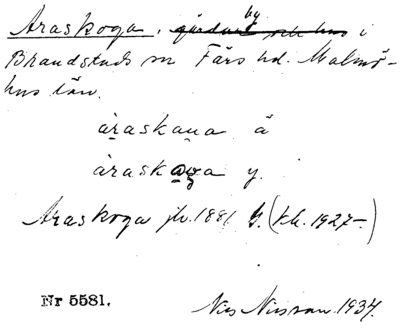 Araskoga, by i
Brandstads sn Färs hd. Malmö-
hus län.
àraskaua ä
àraskaga y.
Araskoga jb. 1881 G. (tk. 1927-)
Nr 5581.
Nils Nilsson 1934.